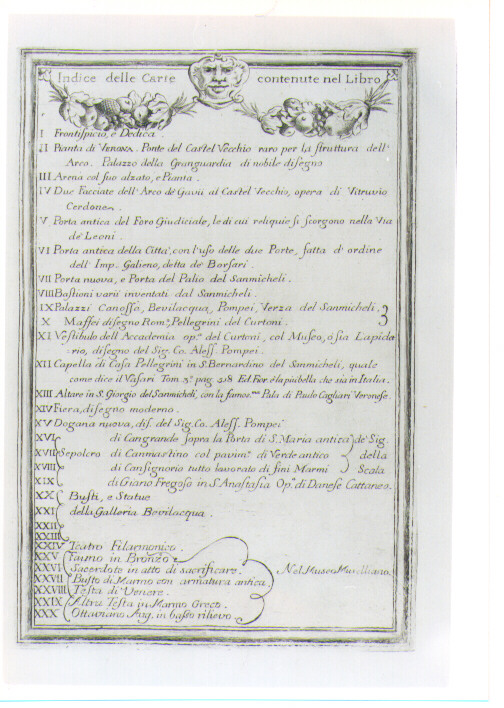 Indice delle Carte contenute nel Libro
I Frontispicio, e Dedica
II Pianta di VERONA. Ponte del Castel Vecchio raro per la struttura dell'
Arco. Palazzo della Granguardia di nobile disegno
III Arena col suo alzato, e Pianta.
IV Due Facciate dell'Arco de Gavii al Castel Vecchio, opera di Vitruvio
Cerdone.
V Porta antica del Foro Giudiciale, le di cui reliquie si scorgono nella Via
de' Leoni.
VI Porta antica della Città, con l'uso delle due Porte, fatta d'ordine
dell' Imp. Galieno, detta de' Borsari.
VII Porta nuova, e Porta del Palio del Sanmicheli.
VIII Bastioni varii inventati dal Sanmicheli.
IX Palazzi Canossa, Bevilacqua, Pompei, Verza del Sanmicheli.
X Maffei disegno Rom.º Pellegrini del Curtoni.
XI Vestibulo dell'Accademia op.ª del Curtoni, col Museo, ò sia Lapida
rio, disegno del Sig. Co. Aless. Pompei.
XII Capella di Casa Pellegrini in S. Bernardino del Sanmicheli, quale
come dice il Vasari Tom. 3.º pag. 518 Ed. Fior. è la piu bella che sia in Italia.
XIII Altare in S. Giorgio del Sanmicheli, con la famos.ma Pala di Paulo Cagliari Veronese.
XIV Fiera, disegno moderno.
XV Dogana nuova, dis. del Sig. Co. Aless. Pompei
XVI di Cangrande sopra la Porta di S. Maria antica de' Sig.
XVII Sepolcro di Canmastino col pavim.º di Verde antico della
XVIII di Cansignorio tutto lavorato di fini Marmi Scala
XIX di Giano Fregoso in S. Anastasia Op.ª di Danese Cattaneo.
XX Busti, e Statue
XXI della Galleria Bevilacqua.
XXII
XXIII
XXIV Teatro Filarmonico.
XXV Fauno in Bronzo
XXVI Sacerdote in atto di sacrificare. Nel Museo Muselliano.
XXVII Busto di Marmo con armatura antica
XXVIII Testa di Venere.
XXIX Altra Testa in Marmo Greco.
XXX Ottaviano Aug. in basso rilievo